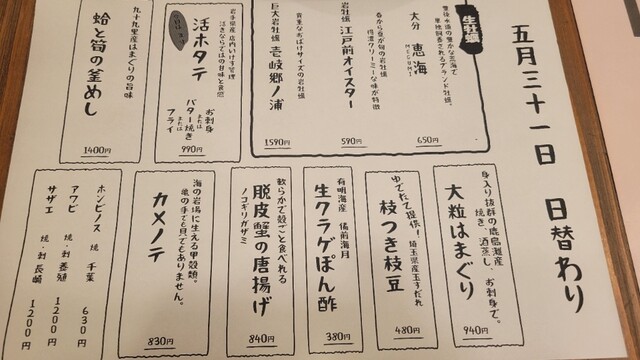 五月三十一日 日替わり
生牡蠣
豊後水道の豊かな三海で
単独飼養されるブランド牡蠣。
大分 恵海
MEGUMI
650円
春から夏が旬の岩牡蠣
特濃クリーミーな味が特徴
岩牡蠣 江戸前オイスター
590円
貴重なおばけサイズの岩牡蠣
巨大岩牡蠣 壱岐郷ノ浦
1590円
岩手県産 店内いけす管理
活きならではの甘味と食感
活ホタテ
お刺身
または
バター焼き
または
フライ
990円
九十九里産はまぐりの旨味
蛤と筍の釜めし
1400円
身入り抜群の鹿島灘産
焼き、酒蒸し、お刺身で。
大粒はまぐり
940円
ゆでたて提供!埼玉県産玉すだれ
枝つき枝豆
480円
有明海産 備前海月
生クラゲぽん酢
380円
軟らかで殻ごと食べれる
ノコギリガザミ
脱皮蟹の唐揚げ
840円
海の岩場に生える甲殻類。
亀の手でも貝でもありません。
カメノテ
830円
ホンビノス 焼 千葉 630円
アワビ 焼・刺 養殖 1200円
サザエ 焼・刺 長崎 1200円